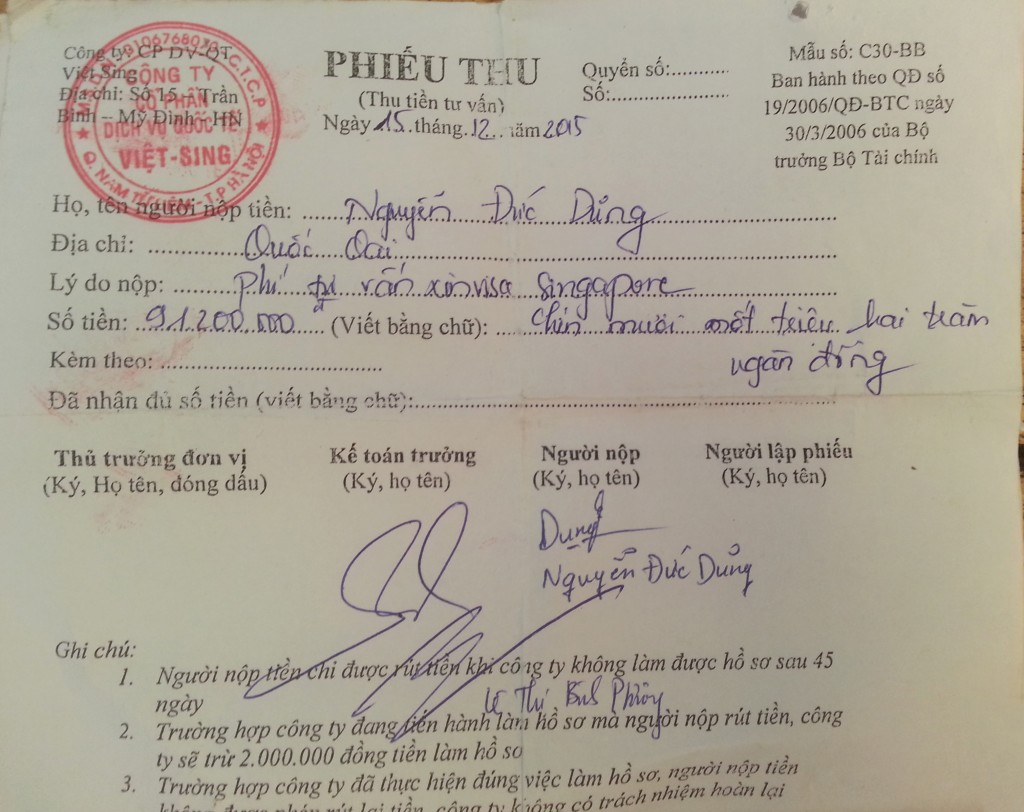 Công ty: CP DV-QT
Việt Sing
Địa chỉ: Số 15 – Trần
Bình – Mỹ Đình – HN
CÔNG TY
CỔ PHẦN
DỊCH VỤ QUỐC TẾ
VIỆT-SING
Q. NAM TỪ LIÊM - T.P HÀ NỘI
PHIẾU THU
(Thu tiền tư vấn)
Ngày 15 tháng 12 năm 2015
Quyển số:...........
Số:.....................
Mẫu số: C30-BB
Ban hành theo QĐ số
19/2006/QĐ-BTC ngày
30/3/2006 của Bộ
trưởng Bộ Tài chính
Họ, tên người nộp tiền: Nguyễn Đức Dũng
Địa chỉ: Quốc Oai
Lý do nộp: Phí tư vấn xin visa Singapore
Số tiền: 91.200.000 đ (Viết bằng chữ): Chín mươi một triệu hai trăm
ngàn đồng
Kèm theo:
Đã nhận đủ số tiền (viết bằng chữ):
Thủ trưởng đơn vị Kế toán trưởng Người nộp Người lập phiếu
(Ký, Họ tên, đóng dấu) (Ký, họ tên) (Ký, họ tên) (Ký, họ tên)
Dung
Nguyễn Đức Dũng
Ghi chú:
1. Người nộp tiền chỉ được rút tiền khi công ty không làm được hồ sơ sau 45
ngày
Lê Thị Phương
2. Trường hợp công ty đang tiến hành làm hồ sơ mà người nộp rút tiền, công
ty sẽ trừ 2.000.000 đồng tiền làm hồ sơ
3. Trường hợp công ty đã thực hiện đúng việc làm hồ sơ, người nộp tiền
không được phép rút lại tiền, công ty không có trách nhiệm hoàn lại